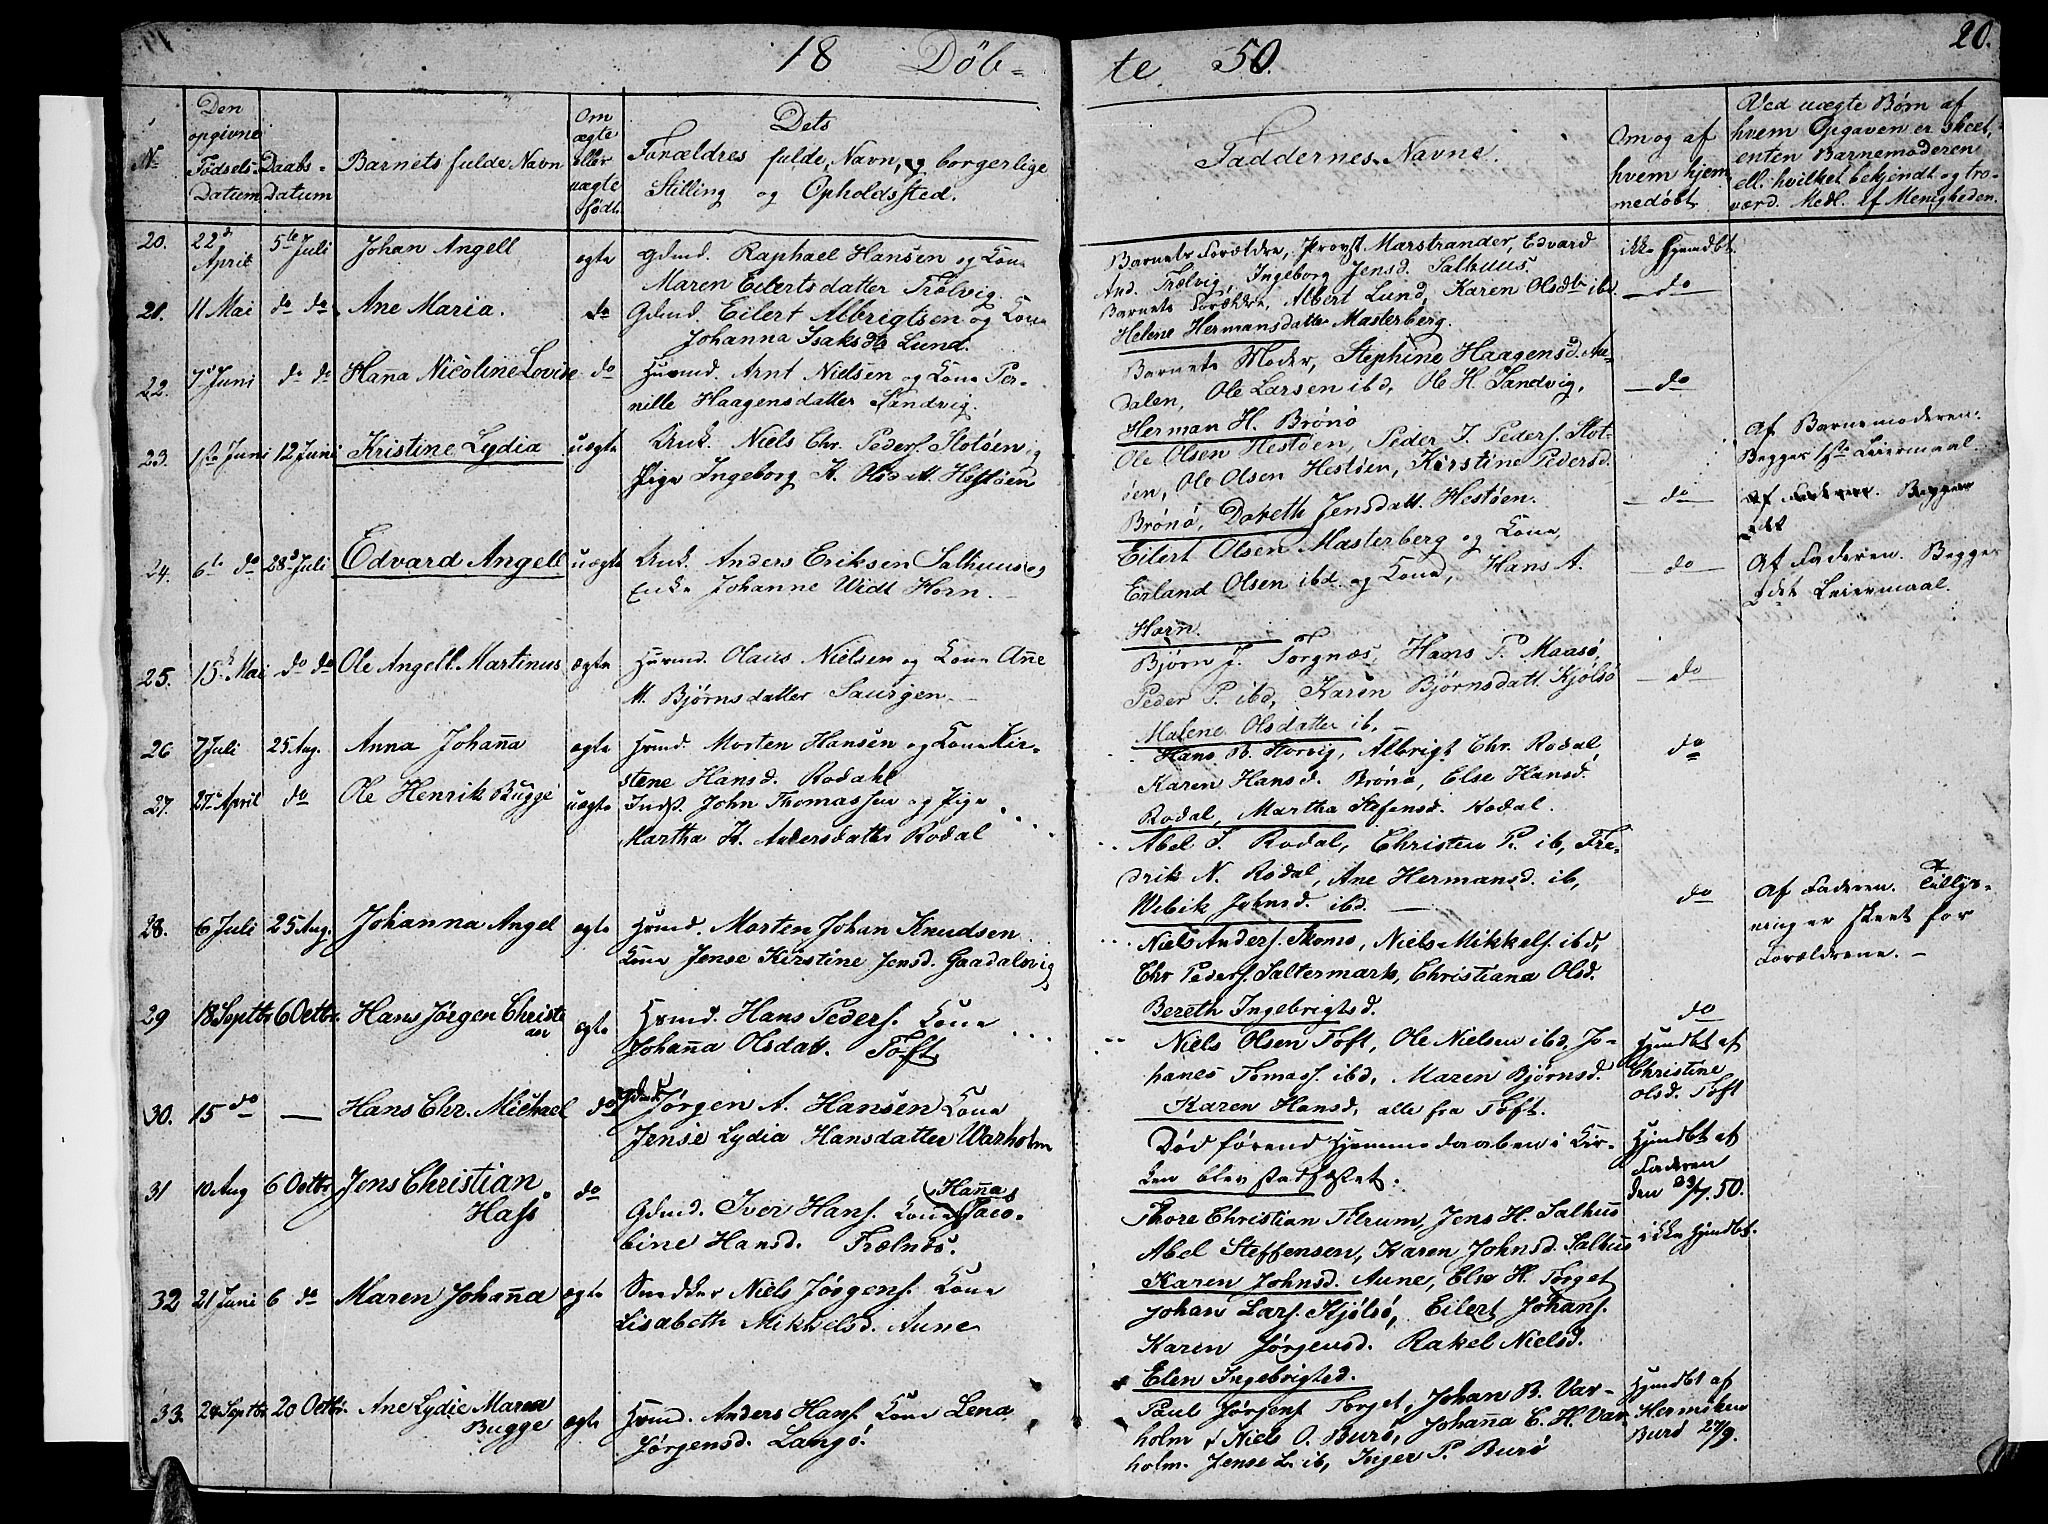 18 Döb=
te 50.
20.
No
Den opgivne Fødsels-Datum
Daabs-Datum
Barnets fulde Navn
Om ægte eller uægte født
Dets Forældres fulde Navn, og borgerlige Stilling og Opholdssted.
Faddernes Navne.
Om og af hvem hjemmedøbt
Ved uægte Børn af hvem Opgaven er skeet, enten Barnemoderen ell. hvilket bekjendt og troværd. Medl. af Menigheden.
20. 22d April 5te Juli Johan Angell ægte Gdmd. Raphael Hansen og Kone
Maren Eilertsdatter Trælvig.
Barnets Forældre, Provst Marstrander, Edvard
And. Trælvig, Ingeborg Jensd. Salhuus.
ikke hjemdbt
21. 11 Mai do do Ane Maria. do Gdmd. Eilert Albrigtsen og Kone
Johanna Isaksdtr Lund.
Barnets Forældre, Albert Lund, Karen Olsdtr ibd.
Helene Hermansdatter Masterberg.
do
22. 7d Juni do do Hanna Nicoline Lovise do Huusmd. Arnt Nielsen og Kone Per-
nille Haagensdatter Sandvig.
Barnets Moder, Stephine Haagensd. Au-
dalen, Ole Larsen ibd, Ole H. Sandvig,
Herman H. Brønø
do
23. 1ste Juni 12 Juni Kristine Lydia uægte Unk. Niels Chr. Peders. Slotøen og
Pige Ingeborg K. Olsdatt. Hestøen
Ole Olsen Hestøen, Peder J. Peders. Slot-
øen, Ole Olsen Hestøen, Kirstine Pedersd.
Brønø, Doreth Jensdatt. Hestøen.
do
Af Barnemoderen.
Begges 1ste Leiermaal.
24. 6te do 28d Juli Edvard Angell uægte Unk. Anders Eriksen Salhuus og
Enke Johanne Widt Horn.
Eilert Olsen Masterberg og Kone,
Erland Olsen ibd. og Kone, Hans A.
Horn.
do
Af Faderen. Begges
2det Leiermaal.
25. 15d Mai do do Ole Angell Martinus ægte Huusmd. Olaus Nielsen og Kone Anne
M. Bjørnsdatter Saurgen.
Bjørn J. Torgnæs, Hans P. Maasø,
Peder P. ibd, Karen Bjørnsdatt. Kjølsø
Malene Olsdatter ib.
do
26 7 Juli 25 Aug. Anna Johanna ægte Huusmd. Morten Hansen og Kone Kir-
stene Hansd. Rodahl
Hans B. Horvig, Albrigt Chr. Rodal,
Karen Hansd. Brønø, Else Hansd.
Rodal, Martha Stefensd. Rodal.
do
27. 27de April do Ole Henrik Bugge uægte Inds. John Thomassen og Pige
Martha K. Andersdatter Rodal
Abel S. Rodal, Christen P. ib, Fre-
drik N. Rodal, Ane Hermansd. ib,
Wibik Johnsd. ibd.
do
Af Faderen.
ning er skeet for
Forældrene.
28. 6 Juli 25 Aug. Johanna Angel ægte Huusmd. Morten Johan Knudsen
Kone Jense Kirstine Jensd. Gaadalsvig
Niels Anders. Skomo, Niels Mikkels. ibd,
Chr Peders. Saltermark, Christiana Olsd.
Bereth Ingebrigtsd.
do
29 18 Septbr 6 Octbr. Hans Jørgen Christi-
an ægte Huusmd. Hans Peders. Kone
Johanna Olsdatt. Toft
Niels Olsen Toft, Ole Nielsen ibd. Jo-
hanes Tomass. ibd, Maren Bjørnsd.
Karen Hansd, alle fra Toft.
Hjmdbt af
Christine
Olsd. Toft
30. 15 do — Hans Chr. Michael do Gdmd Jørgen A. Hansen Kone
Jense Lydia Hansdatter Warholm
Død førend Hjemmedaaben i Kir-
ken blev stadfæstet.
Hjmdbt af
Faderen
den 23/9 50.
31 10 Aug 6 Octbr Jens Christian
Hass do Gdmd. Iver Hans. Kone (Hanna) Jaco-
bine Hansd. Trælnæs.
Thore Christian Tilrum, Jens H. Salhuus
Abel Steffensen, Karen Johnsd. Salhuus
Karen Johnsd. Aune, Else H. Torget
ikke hjmdbt.
32 21 Juni 6 do Maren Johanna ægte Snedker Niels Jørgens. Kone
Lisabeth Mikkelsd. Aune
Johan Lars. Kjølsø, Eilert Johans.
Karen Jørgensd. Rakel Nielsd.
Elen Ingebrigtsd.
33. 24 Septbr. 20 Octbr. Ane Lydie Maren
Bugge ægte Huusmd. Anders Hans. Kone Lena
Jørgensd. Langø.
Paul Jørgens. Torget, Johan B. Var-
holm, Niels O. Burø, Johanna C. H. Var-
holm. Jense L. ib, Inger P. Burø
Hjmdbt af
Burø 27/9.